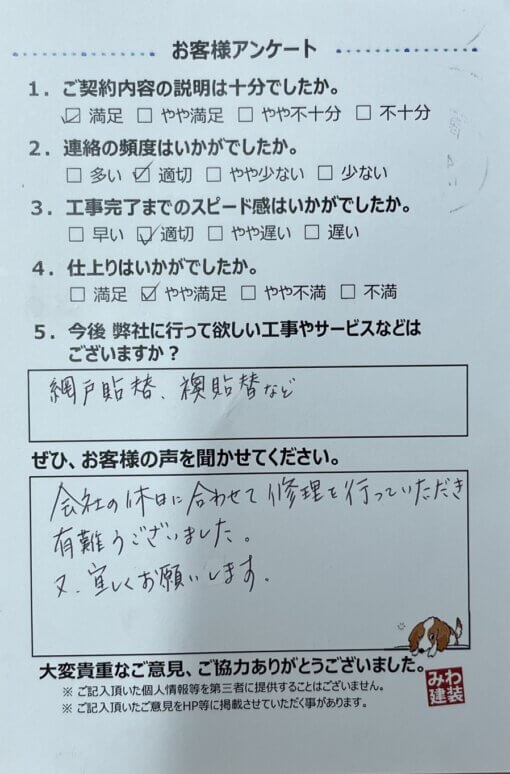 お客様アンケート
1．ご契約内容の説明は十分でしたか。
☑ 満足 □ やや満足 □ やや不十分 □ 不十分
2．連絡の頻度はいかがでしたか。
□ 多い ☑ 適切 □ やや少ない □ 少ない
3．工事完了までのスピード感はいかがでしたか。
□ 早い ☑ 適切 □ やや遅い □ 遅い
4．仕上りはいかがでしたか。
□ 満足 ☑ やや満足 □ やや不満 □ 不満
5．今後 弊社に行って欲しい工事やサービスなどは
ございますか？
網戸貼替、襖貼替など
ぜひ、お客様の声を聞かせてください。
会社の休日に合わせて修理を行っていただき
有難うございました。
又、宜しくお願いします。
大変貴重なご意見、ご協力ありがとうございました。
※ ご記入頂いた個人情報等を第三者に提供することはございません。
※ ご記入頂いたご意見をHP等に掲載させていただく事があります。
みわ
建装